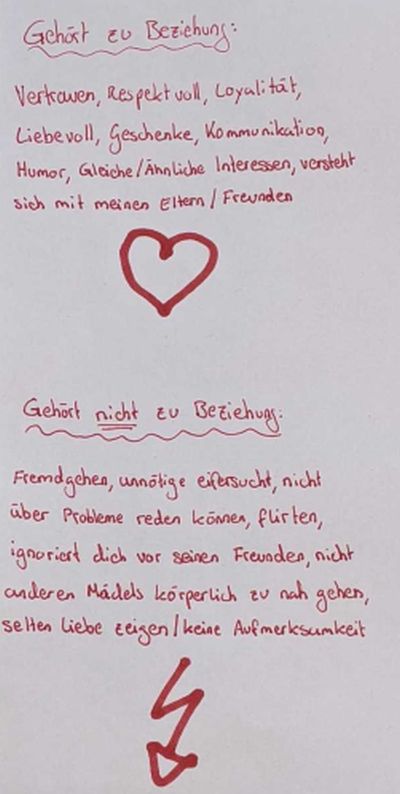 Gehört zu Beziehung:
Vertrauen, Respektvoll, Loyalität,
Liebevoll, Geschenke, Kommunikation,
Humor, Gleiche/Ähnliche Interessen, versteht
sich mit meinen Eltern/Freunden
Gehört nicht zu Beziehung:
Fremdgehen, unnötige eifersucht, nicht
über Probleme reden können, flirten,
ignoriert dich vor seinen Freunden, nicht
anderen Mädels körperlich zu nah gehen,
selten Liebe zeigen/keine Aufmerksamkeit